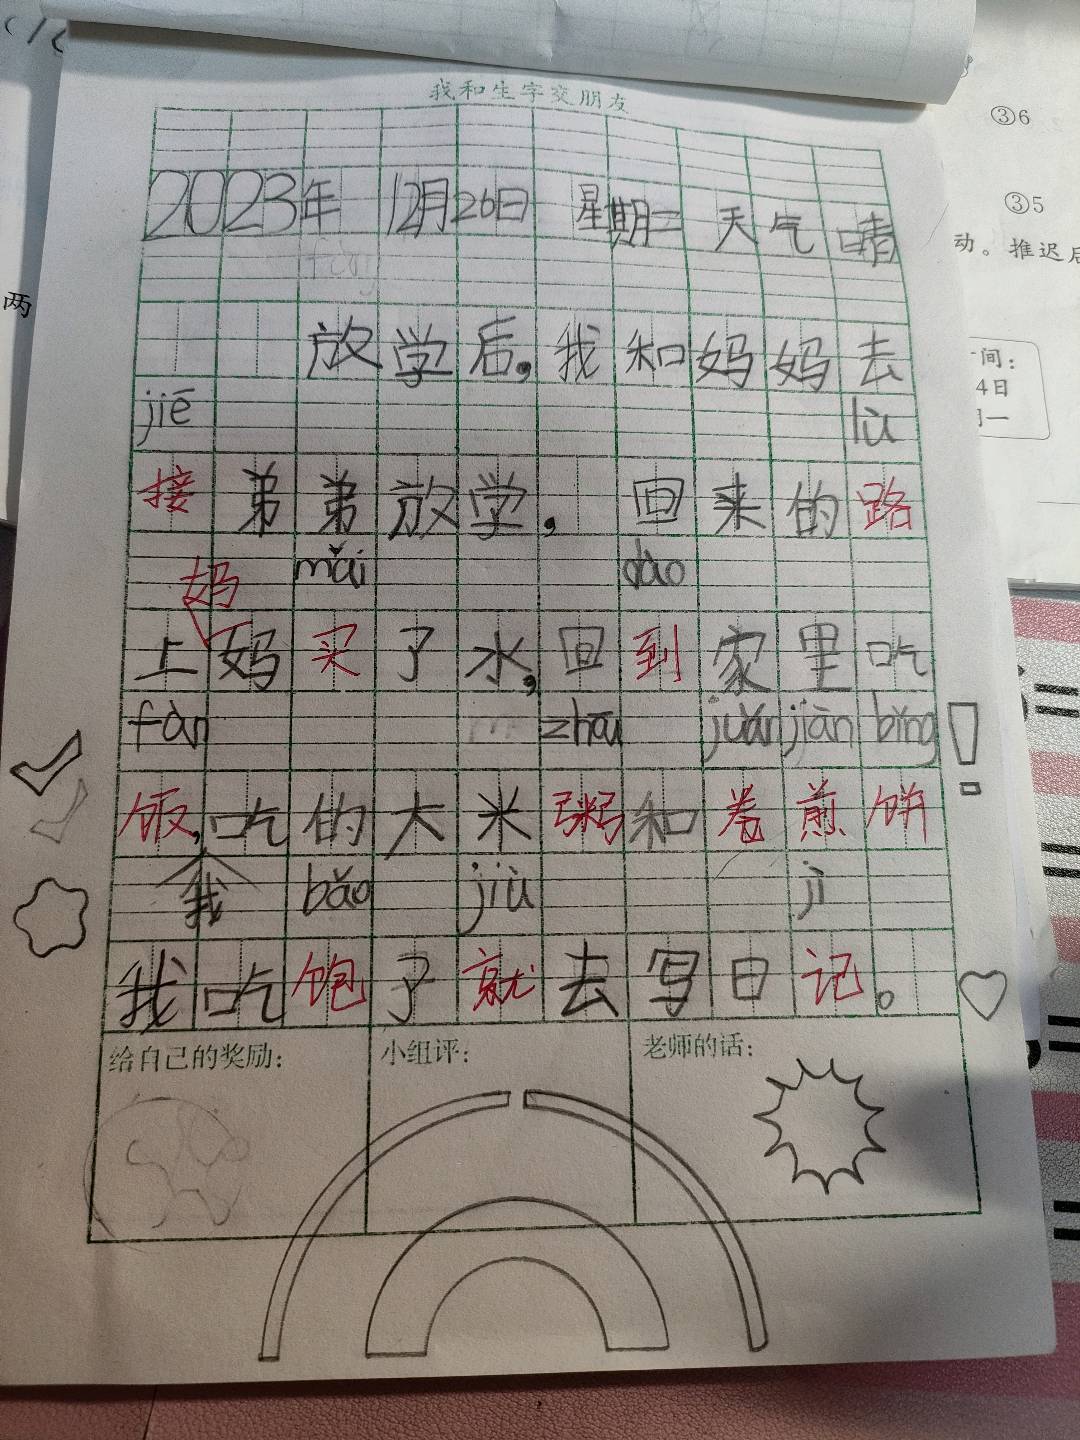 我和生字交朋友
2023年 12月26日 星期二 天气 晴
放学后,我和妈妈去
jiē lù
接弟弟放学, 回来的路
妈 mǎi dào
上妈买了水,回到家里吃
fàn zhōu juǎn jiān bǐng
饭,吃的大米粥和卷煎饼
我 bǎo jiù jì
我吃饱了就去写日记。
给自己的奖励: 小组评: 老师的话:
③6
③5
动。推迟后
间:
4日
一
两